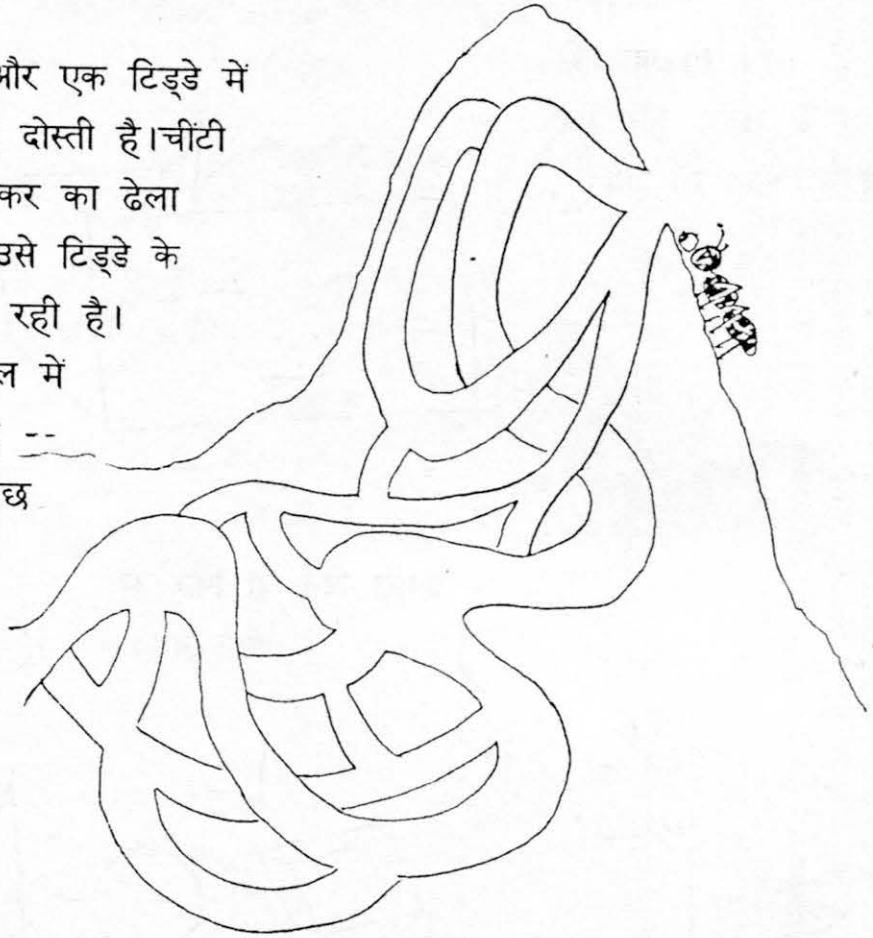 और एक टिड्डे में
दोस्ती है।चींटी
कर का ढेला
उसे टिड्डे के
रही है।
ल में
--
छ